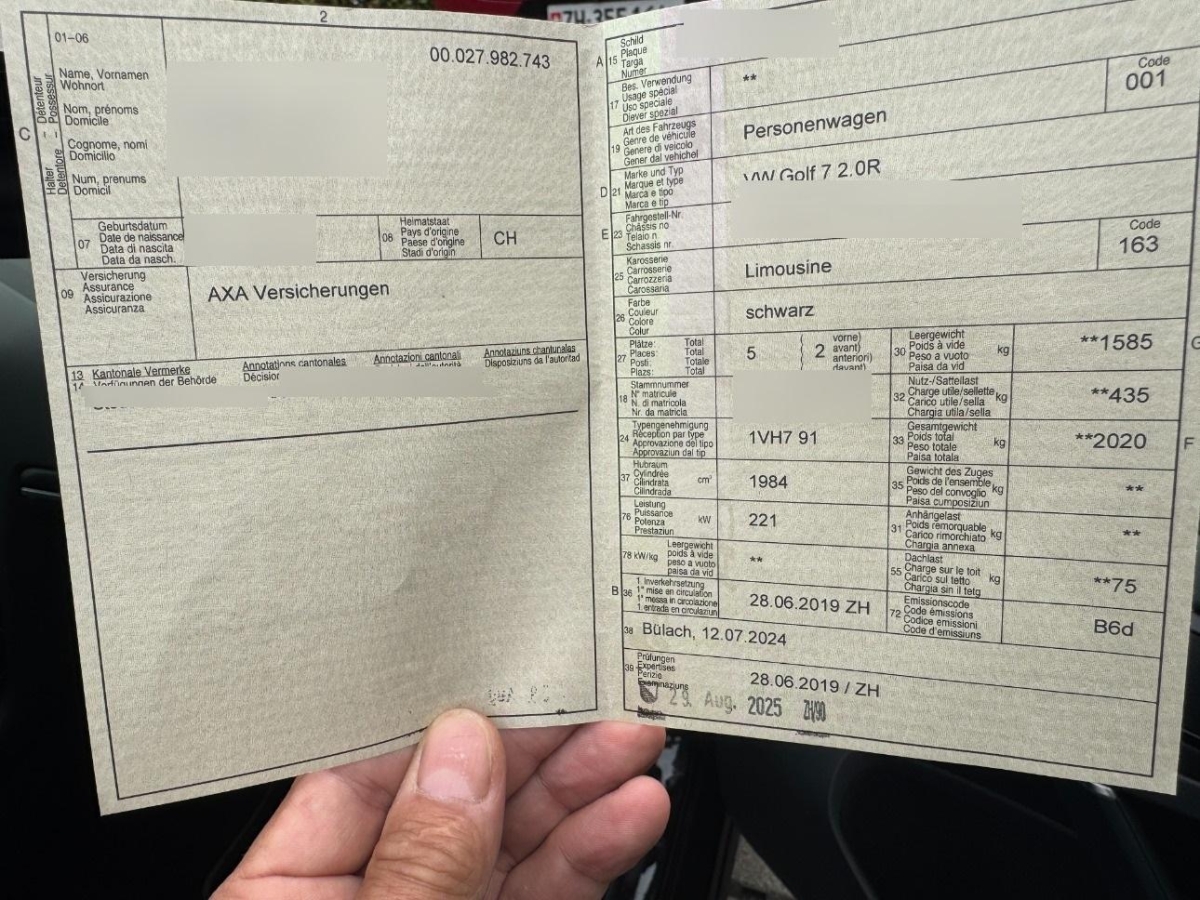 2
01-06
00.027.982.743
C
Halter – Détenteur
Detentore – Possessur
Name, Vornamen
Wohnort
Nom, prénoms
Domicile
Cognome, nomi
Domicilio
Num, prenums
Domicil
07
Geburtsdatum
Date de naissance
Data di nascita
Data da nasch.
08
Heimatstaat
Pays d'origine
Paese d'origine
Stadi d'origin
CH
09
Versicherung
Assurance
Assicurazione
Assicuranza
AXA Versicherungen
13 Kantonale Vermerke
Annotations cantonales
Annotazioni cantonali
Annotaziuns chantunalas
14 Verfügungen der Behörde
Décision
Disposiziuns da l'autoritad
A 15
Schild
Plaque
Targa
Numer
17
Bes. Verwendung
Usage spécial
Uso speciale
Diever spezial
**
Code
001
19
Art des Fahrzeugs
Genre de véhicule
Genere di veicolo
Gener dal vehichel
Personenwagen
D 21
Marke und Typ
Marque et type
Marca e tipo
Marca e tip
VW Golf 7 2.0R
E 23
Fahrgestell-Nr.
Châssis no
Telaio n.
Schassis nr.
25
Karosserie
Carrosserie
Carrozzeria
Carossaria
Limousine
Code
163
26
Farbe
Couleur
Colore
Colur
schwarz
27
Plätze: Total
Places: Total
Posti: Totale
Plazs: Total
5
2
vorne)
avant)
anteriori)
davant)
30
Leergewicht
Poids à vide
Peso a vuoto
Paisa da vid
kg
**1585
G
18
Stammnummer
N° matricule
N. di matricola
Nr. da matricla
32
Nutz-/Sattellast
Charge utile/sellette
Carico utile/sella
Chargia utila/sella
kg
**435
24
Typengenehmigung
Réception par type
Approvazione del tipo
Approvaziun dal tip
1VH7 91
33
Gesamtgewicht
Poids total
Peso totale
Paisa totala
kg
**2020
F
37
Hubraum
Cylindrée
Cilindrata
Cilindrada
cm³
1984
35
Gewicht des Zuges
Poids de l'ensemble
Peso del convoglio
Paisa cumposiziun
kg
**
76
Leistung
Puissance
Potenza
Prestaziun
kW
221
31
Anhängelast
Poids remorquable
Carico rimorchiato
Chargia annexa
kg
**
78 kW/kg
Leergewicht
poids à vide
peso a vuoto
paisa da vid
**
55
Dachlast
Charge sur le toit
Carico sul tetto
Chargia sin il tetg
kg
**75
B 36
1. Inverkehrsetzung
1re mise en circulation
1a messa in circolazione
1. entrada en circulaziun
28.06.2019 ZH
72
Emissionscode
Code émissions
Codice emissioni
Code d'emissiuns
B6d
38
Bülach, 12.07.2024
39
Prüfungen
Expertises
Perizie
Examinaziuns
28.06.2019 / ZH
29. Aug. 2025 ZH/90